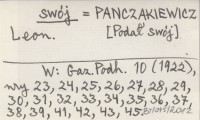 swój = PANCZAKIEWICZ
Leon. [Podał swój]
W: Gaz. Podh. 10 (1922),
nry 23, 24, 25, 26, 27, 28, 29,
30, 31, 32, 33, 34, 35, 36, 37,
38, 39, 41, 42, 43, 45.